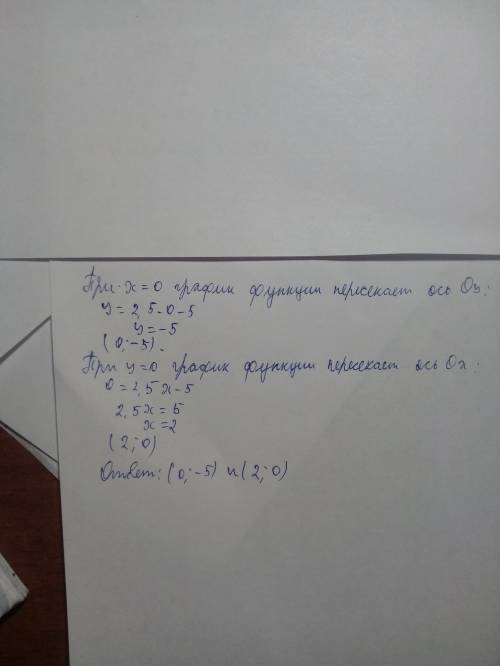 При x=0 график функции пересекает ось Oy:
y=2,5·0-5
y=-5
(0;-5).
При y=0 график функции пересекает ось Ox:
0=2,5x-5
2,5x=5
x=2
(2;0)
Ответ: (0;-5) и (2;0)